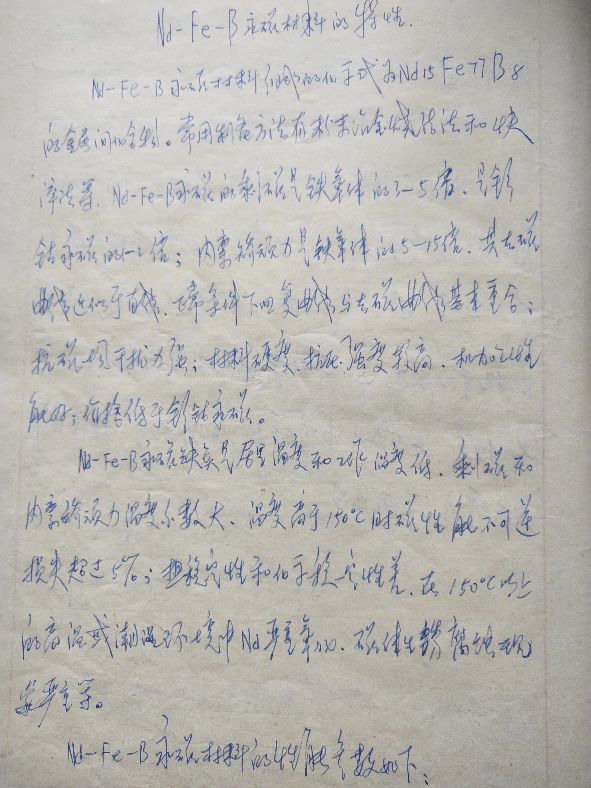 Nd-Fe-B永磁材料的特性.
Nd-Fe-B永磁材料组成的化学式为Nd15Fe77B8
的金属间化合物。常用制备方法有粉末冶金烧结法和快
淬法等. Nd-Fe-B永磁的剩磁是铁氧体的3-5倍、是钐
钴永磁的1-2倍；内禀矫顽力是铁氧体的5-15倍. 其去磁
曲线近似于直线、正常条件下回复曲线与去磁曲线基本重合；
抗磁场干扰力强；材料硬度、抗压强度较高、机加工性
能好；价格低于钐钴永磁。
Nd-Fe-B永磁缺点是居里温度和工作温度低、剩磁和
内禀矫顽力温度系数大、温度高于150℃时磁性能不可逆
损失超过5%；热稳定性和化学稳定性差、在150℃以上
的高温或潮湿环境中Nd严重氧化、磁体生锈腐蚀现
象严重等。
Nd-Fe-B永磁材料的性能参数如下：